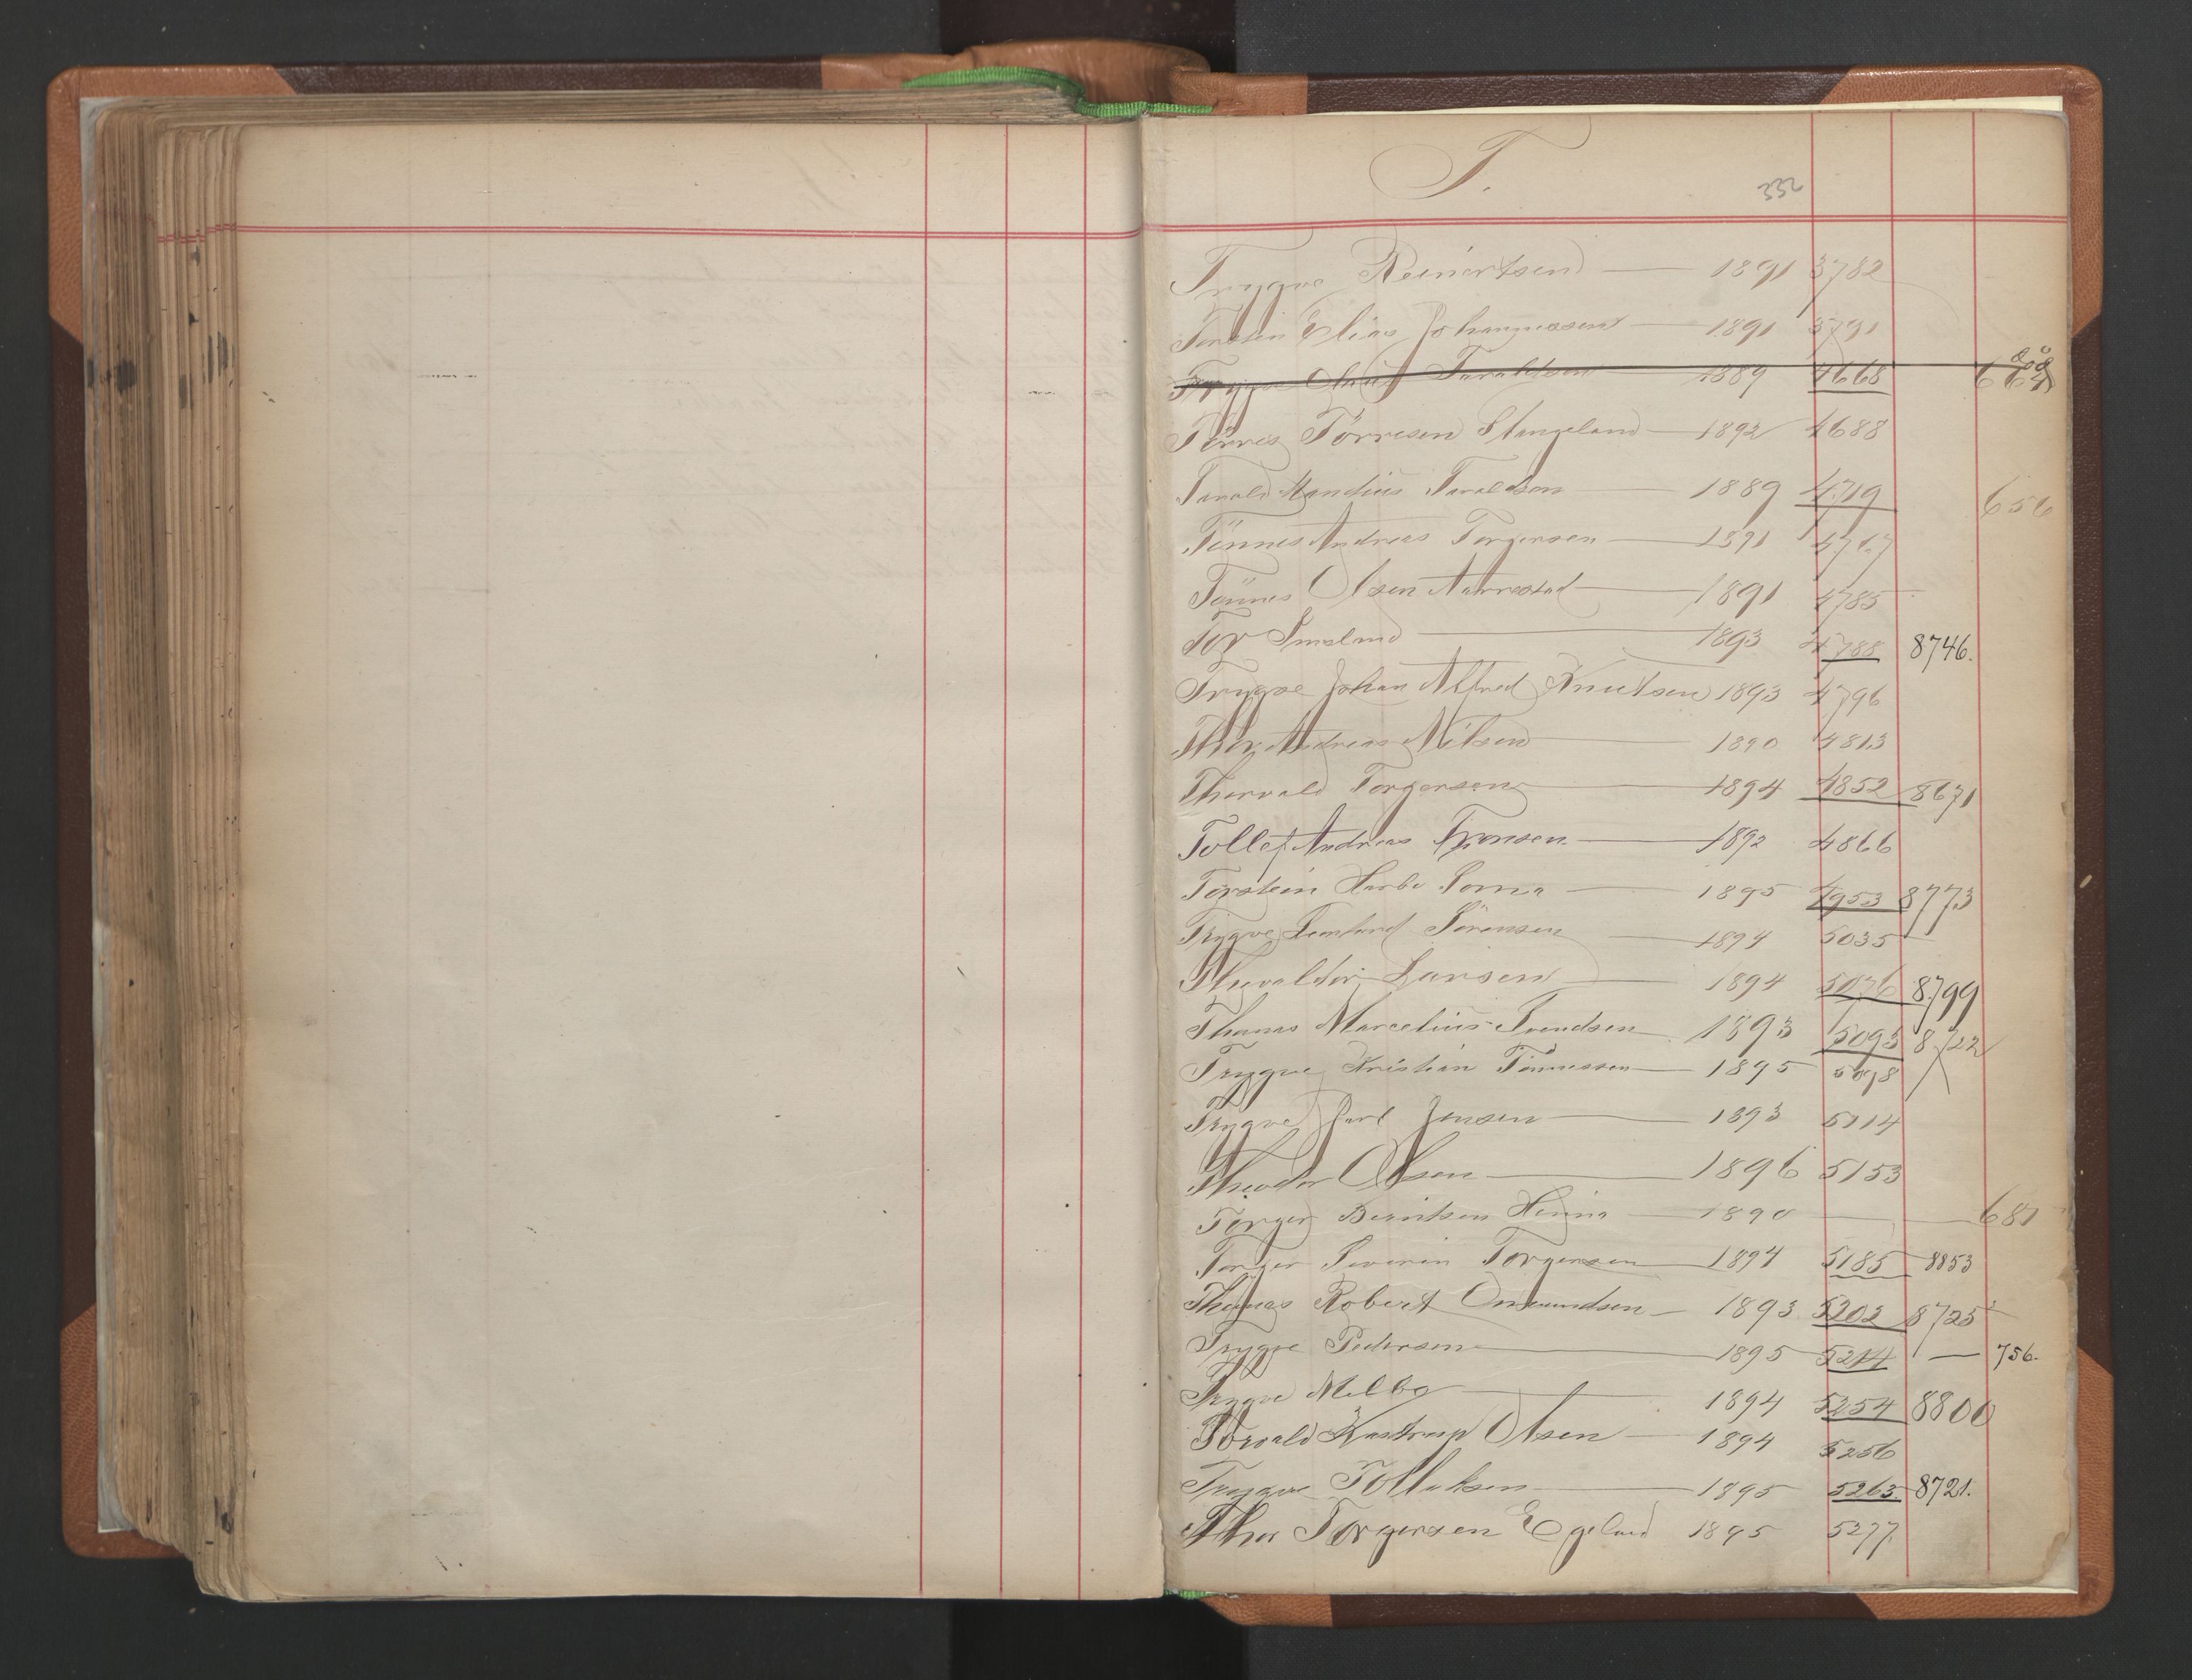 T.
232
Trygve Reinertsen — 1891 3782
Torstein Elias Johannessen — 1891 3791
Trygve Taraldsen 1889 4668
Tørres Törresen Stangeland — 1892 4688
Tarald Mandius Taraldsen — 1889 4719 656
Tönnes Andreas Torgersen — 1891
Tönnes Olsen Nærrestad — 1891 4785
Tor Imsland — 1893 4788 8746.
Trygve Johan Alfred Knutsen 1893 4796
Thor Andreas Nilsen — 1890 4813
Thorvald Torgersen — 1894 4852 8671
Tollef Andreas Tjensen — 1892 4866
Torstein Harbo Soma — 1895 4953 8773
Trygve Sörensen — 1894 5035
Thevaldor Larsen — 1894 5076 8799
Thomas Marcelius Svendsen — 1893 5093 8722
Trygve Kristian Tönnessen — 1895 5098
Trygve Carl Jensen — 1893 5114
Theodor Olsen — 1896 5153
Torger Berntsen Hinna — 1890 — — 681
Torger Severin Torgersen — 1894 5185 8853
Thomas Robert Omundsen — 1893 5202 8725
Trygve Pedersen — 1895 5214 — 756.
Trygve Melbg — 1894 5254 8800
Torvald Kastrup Olsen — 1894 5256
Trygve Tollaksen — 1895 5263. 8721.
Thor Torgersen Egeland 1895 5277.